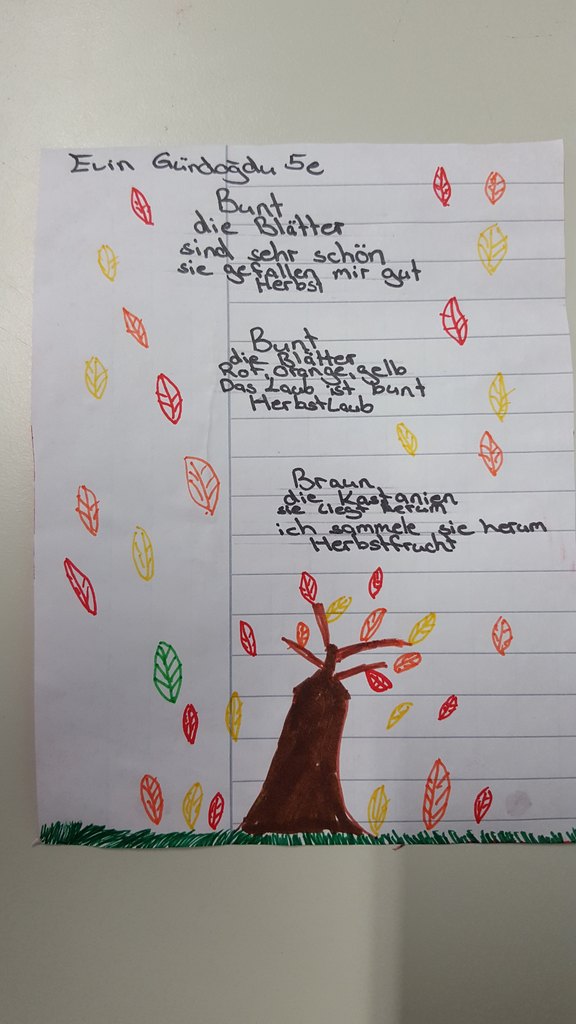 Evin Gündoğdu 5e
Bunt
die Blätter
sind sehr schön
sie gefallen mir gut
Herbst
Bunt
die Blätter
Rot, orange, gelb
Das Laub ist bunt
HerbstLaub
Braun
die Kastanien
sie liegt herum
ich sammele sie herum
Herbstfrucht